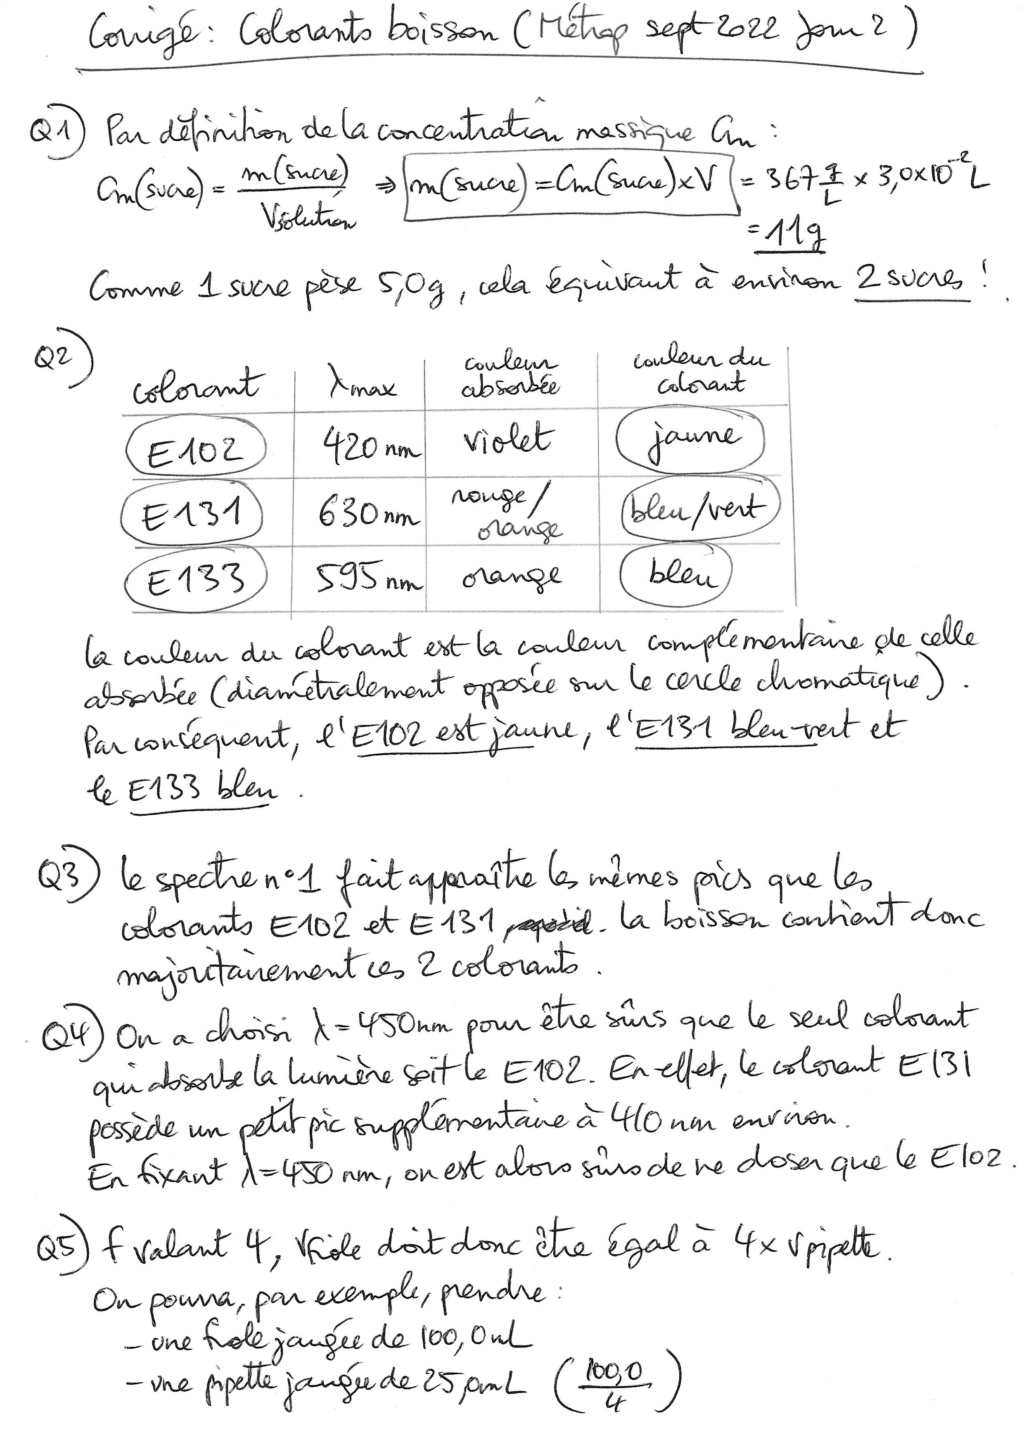 Corrigé : Colorants boisson (Métrop sept 2022 Jour 2)
Q1) Par définition de la concentration massique Cm :
Cm(sucre) = m(sucre) / Vsolution ⇒ m(sucre) = Cm(sucre) × V = 367 g/L × 3,0×10⁻² L
= 11g
Comme 1 sucre pèse 5,0g, cela équivaut à environ 2 sucres !
Q2)
colorant | λmax | couleur absorbée | couleur du colorant
E102 | 420 nm | violet | jaune
E131 | 630 nm | rouge/orange | bleu/vert
E133 | 595 nm | orange | bleu
La couleur du colorant est la couleur complémentaire de celle
absorbée (diamétralement opposée sur le cercle chromatique).
Par conséquent, l'E102 est jaune, l'E131 bleu-vert et
le E133 bleu.
Q3) Le spectre n°1 fait apparaître les mêmes pics que les
colorants E102 et E131. La boisson contient donc
majoritairement ces 2 colorants.
Q4) On a choisi λ = 450nm pour être sûrs que le seul colorant
qui absorbe la lumière soit le E102. En effet, le colorant E131
possède un petit pic supplémentaire à 410 nm environ.
En fixant λ = 450 nm, on est alors sûrs de ne doser que le E102.
Q5) f valant 4, Vfiole doit donc être égal à 4 × Vpipette.
On pourra, par exemple, prendre :
- une fiole jaugée de 100,0 mL
- une pipette jaugée de 25,0mL (100,0 / 4)